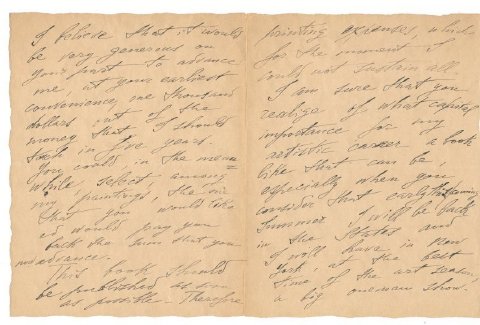 I believe that it would
be very generous on
your part to advance
me, at your earliest
convenience, one thousand
dollars out of the
money that I should
in five years.
You could, in the mean=
while, select among
my paintings, the one
that you would like
would pay you
back the sum that you
advance.
This book should
be published as soon
as possible - Therefore
printing expenses, which
for the moment I
could not sustain all.
I am sure that you
realize of what capital
importance for my
artistic career a book
like that can be,
especially when you
consider that early this coming
Summer, I will be back
in the States and
I will have in New
York, at the best
time of the art season,
a big one-man show.